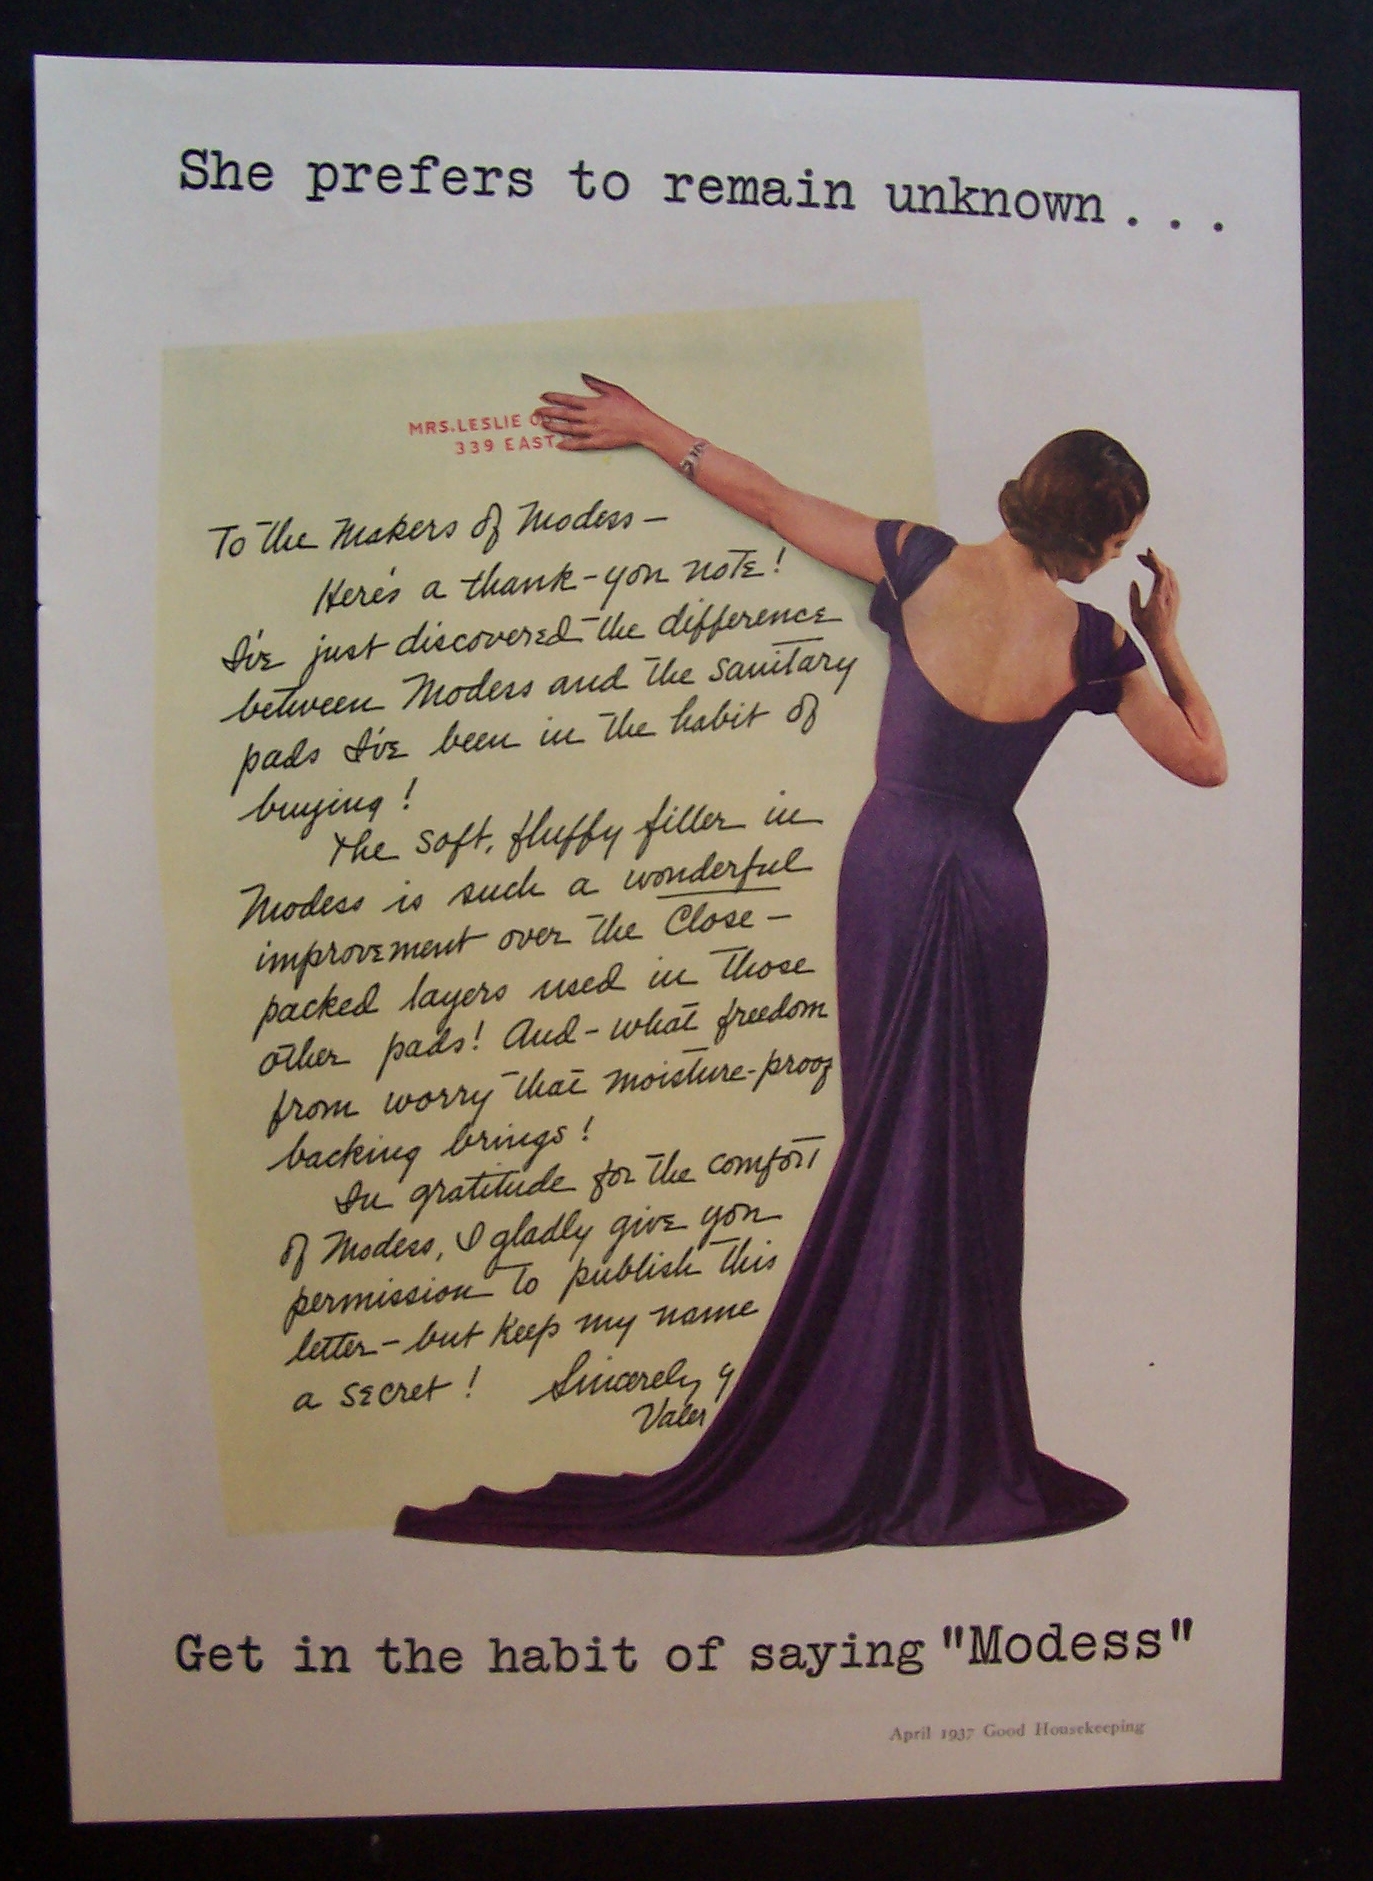 She prefers to remain unknown...
MRS. LESLIE
339 EAST
To the Makers of Modess—
Here's a thank-you note!
I've just discovered the difference
between Modess and the sanitary
pads I've been in the habit of
buying!
The soft, fluffy filler in
Modess is such a wonderful
improvement over the close-
packed layers used in those
other pads! And—what freedom
from worry that moisture-proof
backing brings!
In gratitude for the comfort
of Modess, I gladly give you
permission to publish this
letter—but keep my name
a secret! Sincerely y
Valer
Get in the habit of saying "Modess"
April 1937 Good Housekeeping